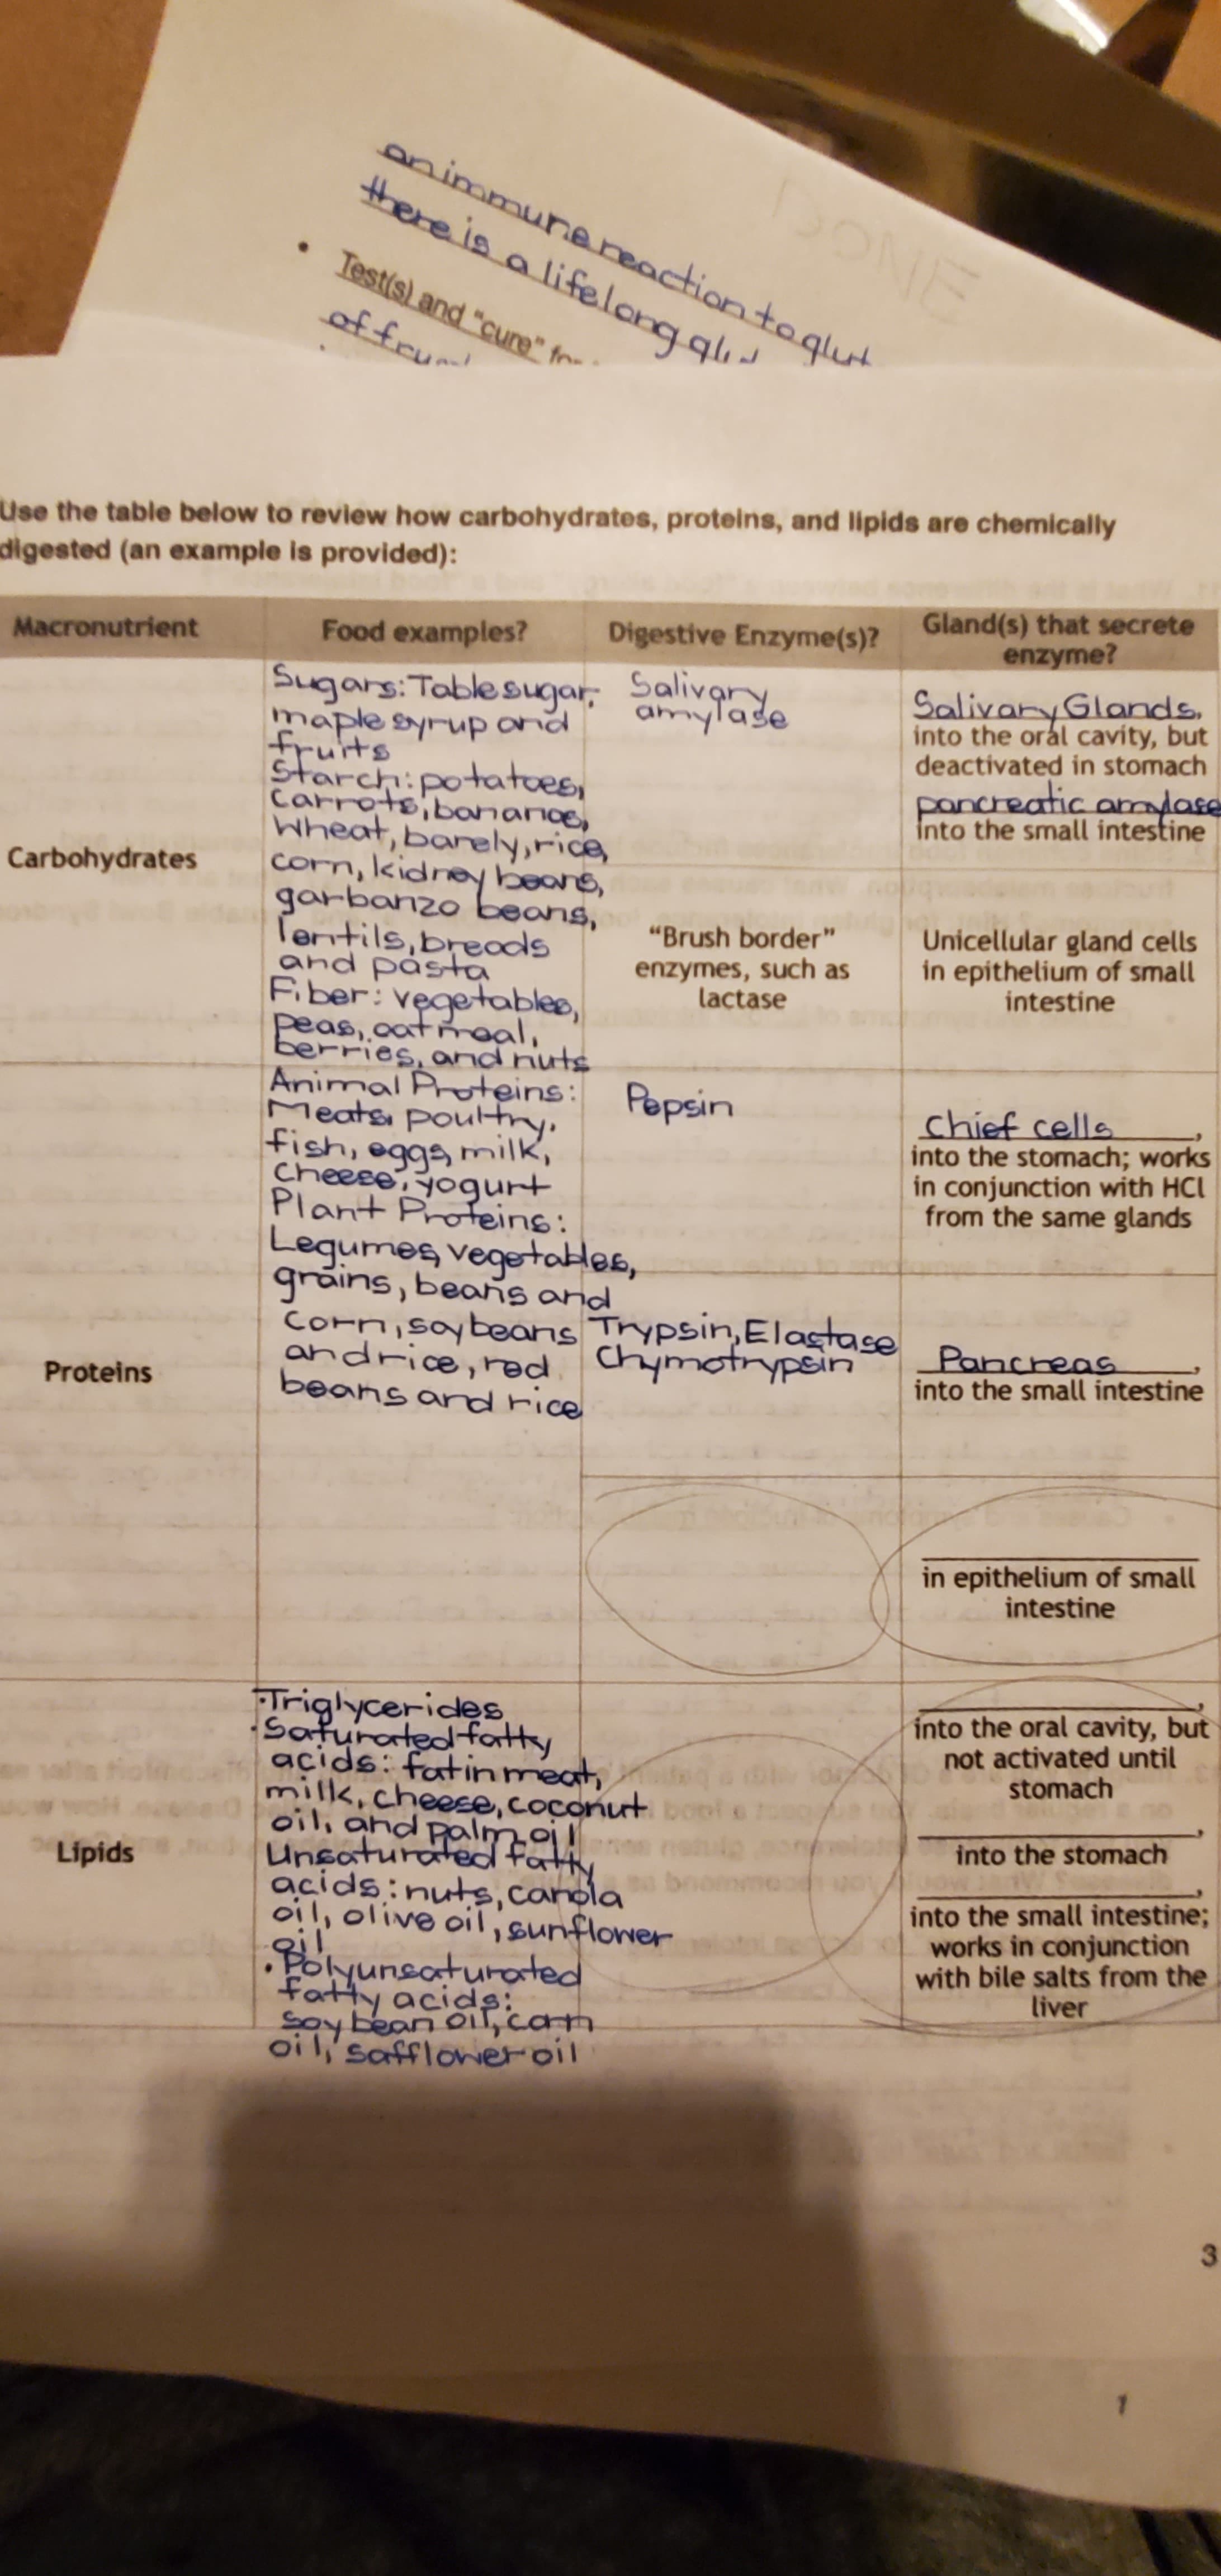 an immune reaction to glut
there is a lifelong
Test(s) and "cure" for
of
Use the table below to review how carbohydrates, proteins, and lipids are chemically
digested (an example is provided):
Macronutrient
Food examples?
Digestive Enzyme(s)?
Gland(s) that secrete
enzyme?
Carbohydrates
Sugars: Table sugar,
maple syrup and
fruits
Starch: potatoes,
carrots, bananas,
wheat, barely, rice,
corn, kidney beans,
garbanzo beans,
lentils, breads
and pasta
Fiber: vegetables,
peas, oatmeal,
berries, and nuts
Salivary
amylase
Salivary Glands,
into the oral cavity, but
deactivated in stomach
pancreatic amylase
into the small intestine
"Brush border"
enzymes, such as
lactase
Unicellular gland cells
in epithelium of small
intestine
Proteins
Animal Proteins:
Meats, poultry,
fish, eggs, milk,
cheese, yogurt
Plant Proteins:
Legumes, vegetables,
grains, beans and
corn, soybeans
and rice, red
beans and rice
Pepsin
Chief cells,
into the stomach; works
in conjunction with HCl
from the same glands
Trypsin, Elastase
Chymotrypsin
Pancreas,
into the small intestine
in epithelium of small
intestine
Lipids
·Triglycerides
·Saturated fatty
acids: fat in meat,
milk, cheese, coconut
oil, and palm oil
Unsaturated fatty
acids: nuts, canola
oil, olive oil, sunflower
oil
·Polyunsaturated
fatty acids:
soybean oil, corn
oil, safflower oil
,
into the oral cavity, but
not activated until
stomach
,
into the stomach
,
into the small intestine;
works in conjunction
with bile salts from the
liver
3
1